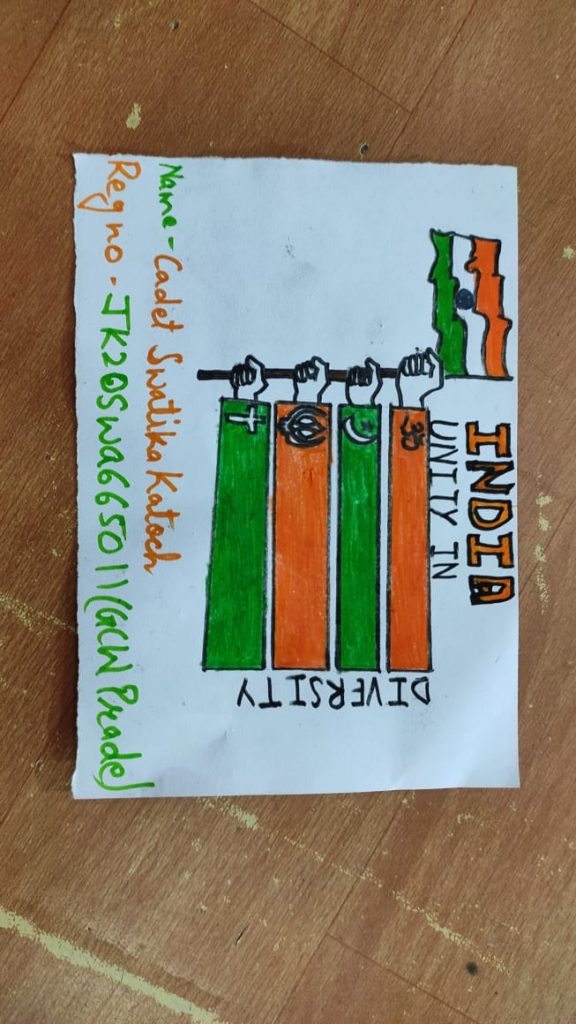 INDIA
UNITY IN
DIVERSITY
Name - Cadet Swatika Katoch
Regno - JK20SWA665011(GCW Prade)